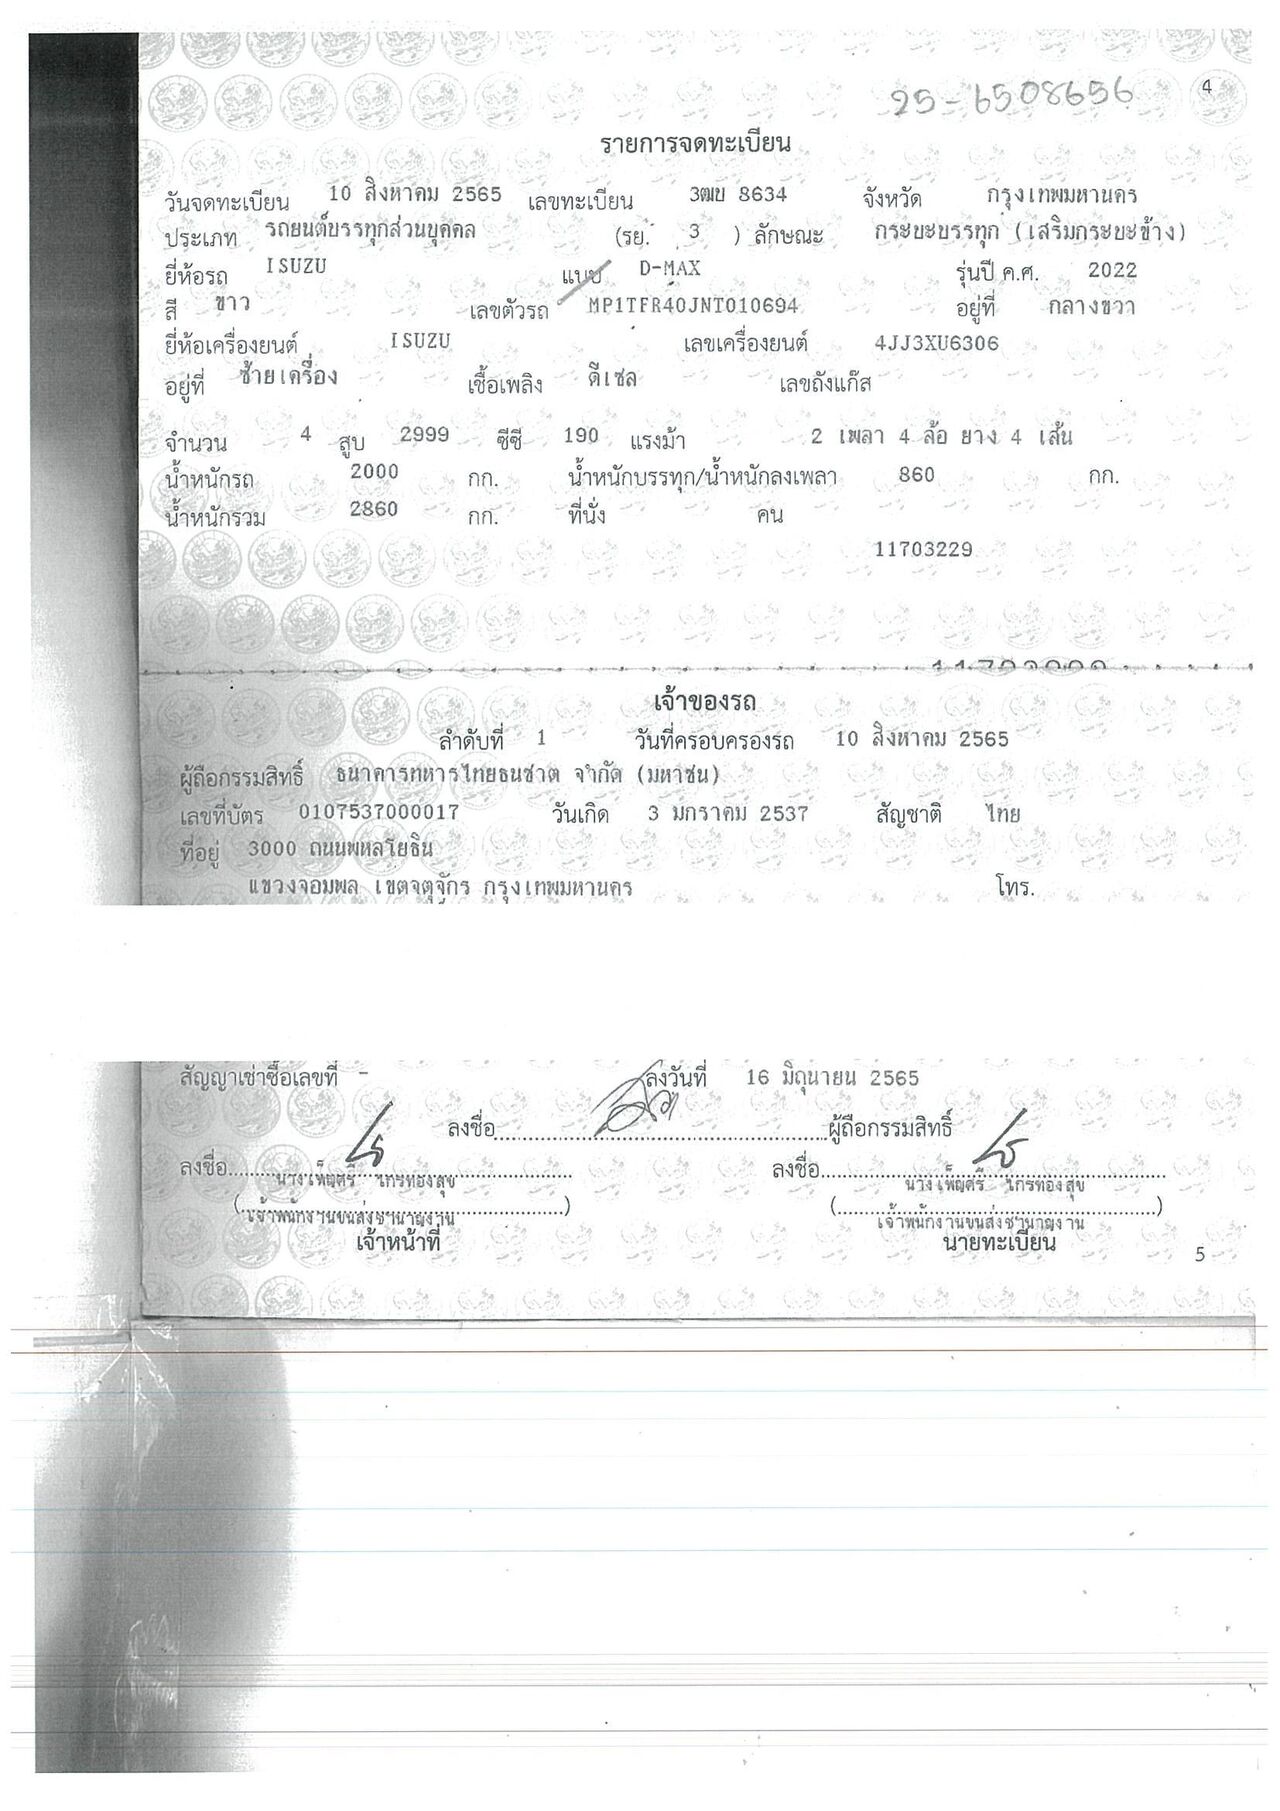 25-6508656 4
รายการจดทะเบียน
วันจดทะเบียน 10 สิงหาคม 2565 เลขทะเบียน 3ฒบ 8634 จังหวัด กรุงเทพมหานคร
ประเภท รถยนต์บรรทุกส่วนบุคคล (รย. 3 ) ลักษณะ กระบะบรรทุก (เสริมกระบะข้าง)
ยี่ห้อรถ ISUZU แบบ D-MAX รุ่นปี ค.ศ. 2022
สี ขาว เลขตัวรถ MP1TFR40JNT010694 อยู่ที่ กลางขวา
ยี่ห้อเครื่องยนต์ ISUZU เลขเครื่องยนต์ 4JJ3XU6306
อยู่ที่ ซ้ายเครื่อง เชื้อเพลิง ดีเซล เลขถังแก๊ส
จำนวน 4 สูบ 2999 ซีซี 190 แรงม้า 2 เพลา 4 ล้อ ยาง 4 เส้น
น้ำหนักรถ 2000 กก. น้ำหนักบรรทุก/น้ำหนักลงเพลา 860 กก.
น้ำหนักรวม 2860 กก. ที่นั่ง คน
11703229
เจ้าของรถ
ลำดับที่ 1 วันที่ครอบครองรถ 10 สิงหาคม 2565
ผู้ถือกรรมสิทธิ์ ธนาคารทหารไทยธนชาต จำกัด (มหาชน)
เลขที่บัตร 0107537000017 วันเกิด 3 มกราคม 2537 สัญชาติ ไทย
ที่อยู่ 3000 ถนนพหลโยธิน
แขวงจอมพล เขตจตุจักร กรุงเทพมหานคร โทร.
สัญญาเช่าซื้อเลขที่ - ลงวันที่ 16 มิถุนายน 2565
ลงชื่อ ผู้ถือกรรมสิทธิ์
ลงชื่อ ลงชื่อ
นางเพ็ญศรี ไกรทองสุข นางเพ็ญศรี ไกรทองสุข
(เจ้าพนักงานขนส่งชำนาญงาน) (เจ้าพนักงานขนส่งชำนาญงาน)
เจ้าหน้าที่ นายทะเบียน
5